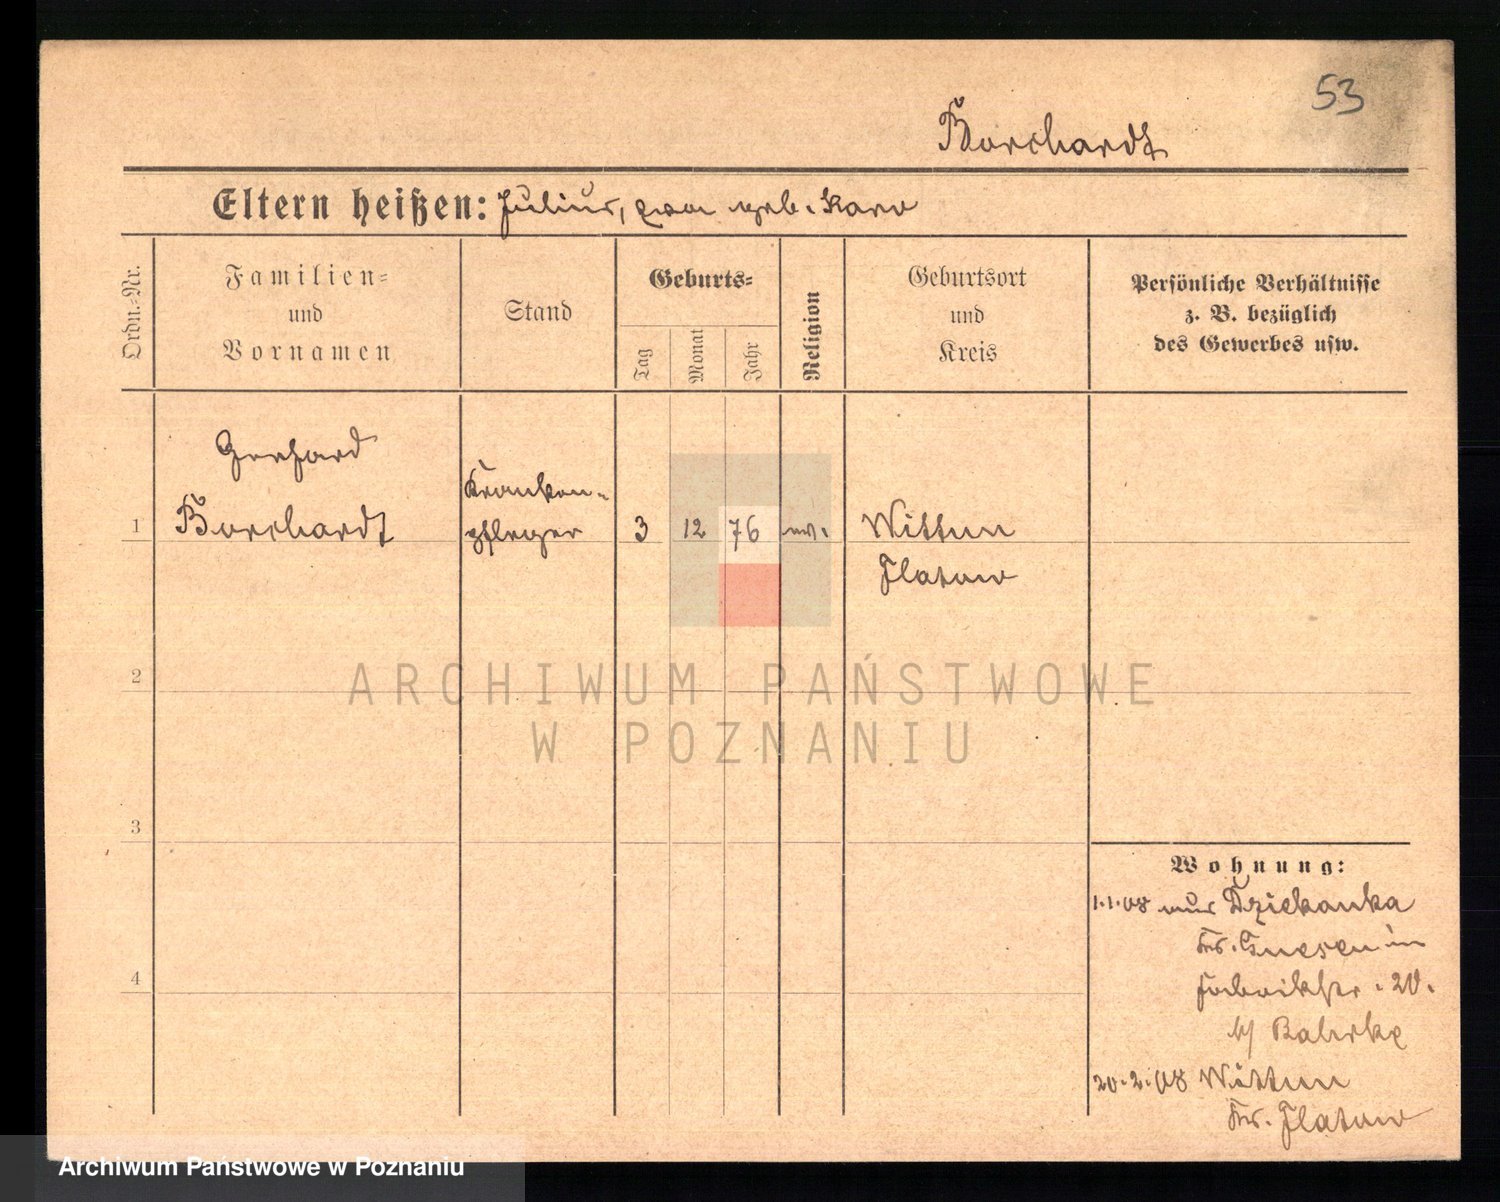 53
Borchardt
Eltern heißen: Julius, geb. Karo
Ordn.-Nr.
Familien-
und
Vornamen
Stand
Geburts-
Tag
Monat
Jahr
Religion
Geburtsort
und
Kreis
Persönliche Verhältnisse
z. B. bezüglich
des Gewerbes usw.
Gerhard
1 Borchardt
Kranken-
pfleger
3 12 76 ev.
Wittun
Flatow
2
3
4
ARCHIWUM PAŃSTWOWE
W POZNANIU
Wohnung:
1.1.08 aus Dziekanka
Kr. Gnesen in
Fabrikstr. 20.
b/
20.2.08 Wittun
Kr. Flatow
Archiwum Państwowe w Poznaniu